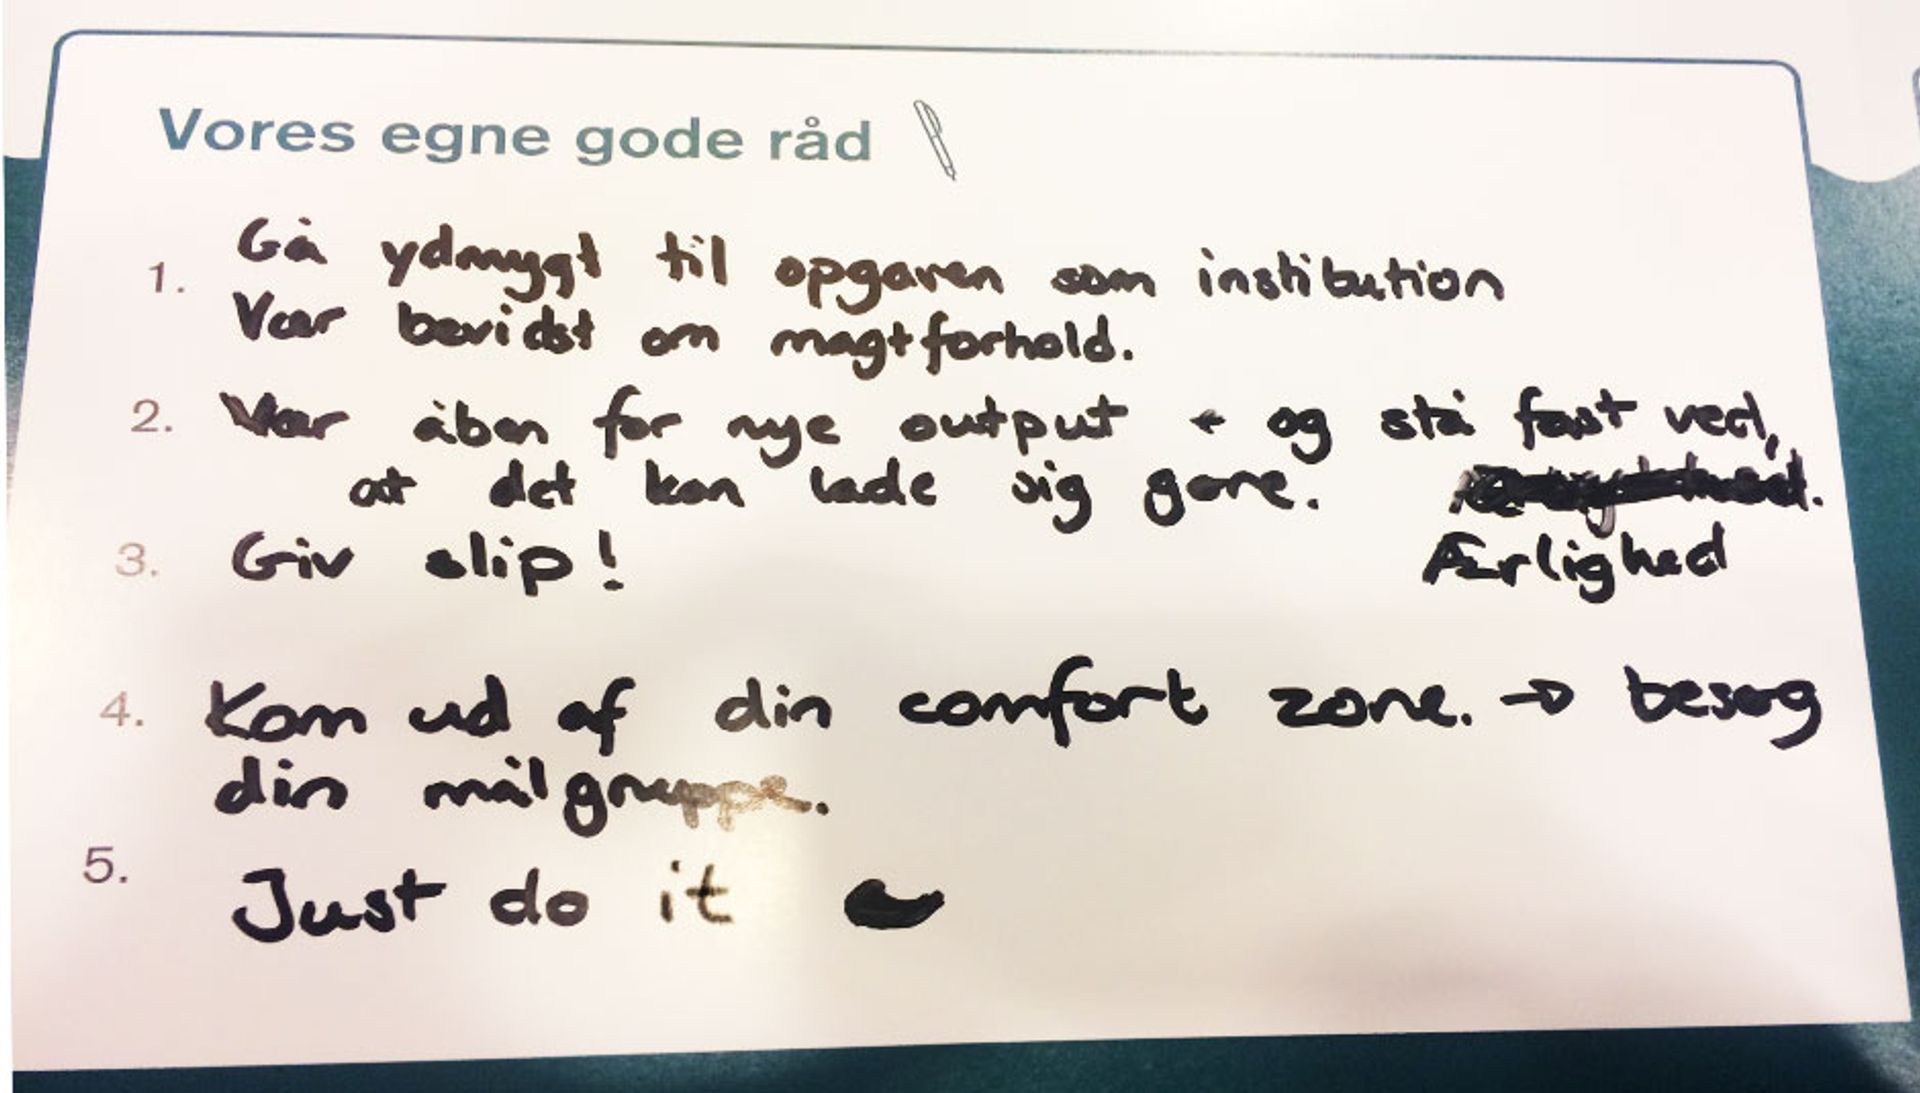 Vores egne gode råd
1. Gå ydmygt til opgaven som institution
Vær bevidst om magtforhold.
2. Vær åben for nye output - og stå fast ved,
at det kan lade sig gøre.
3. Giv slip! Ærlighed
4. Kom ud af din comfort zone. → besøg
din målgruppe.
5. Just do it